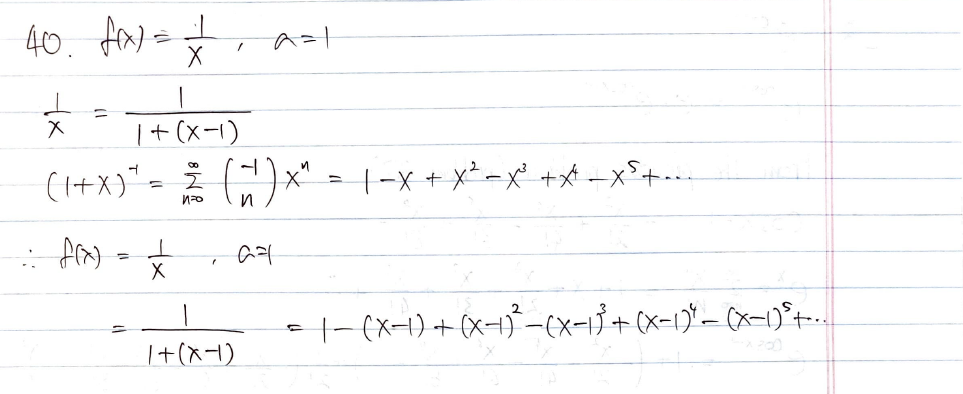 40. f(x) = 1/x , a=1
1/x = 1/(1+(x-1))
(1+x)⁻¹ = ∑_{n=0}^{∞} (-1 n) xⁿ = 1-x+x²-x³+x⁴-x⁵+...
∴ f(x) = 1/x , a=1
= 1/(1+(x-1)) = 1-(x-1)+(x-1)²-(x-1)³+(x-1)⁴-(x-1)⁵+...